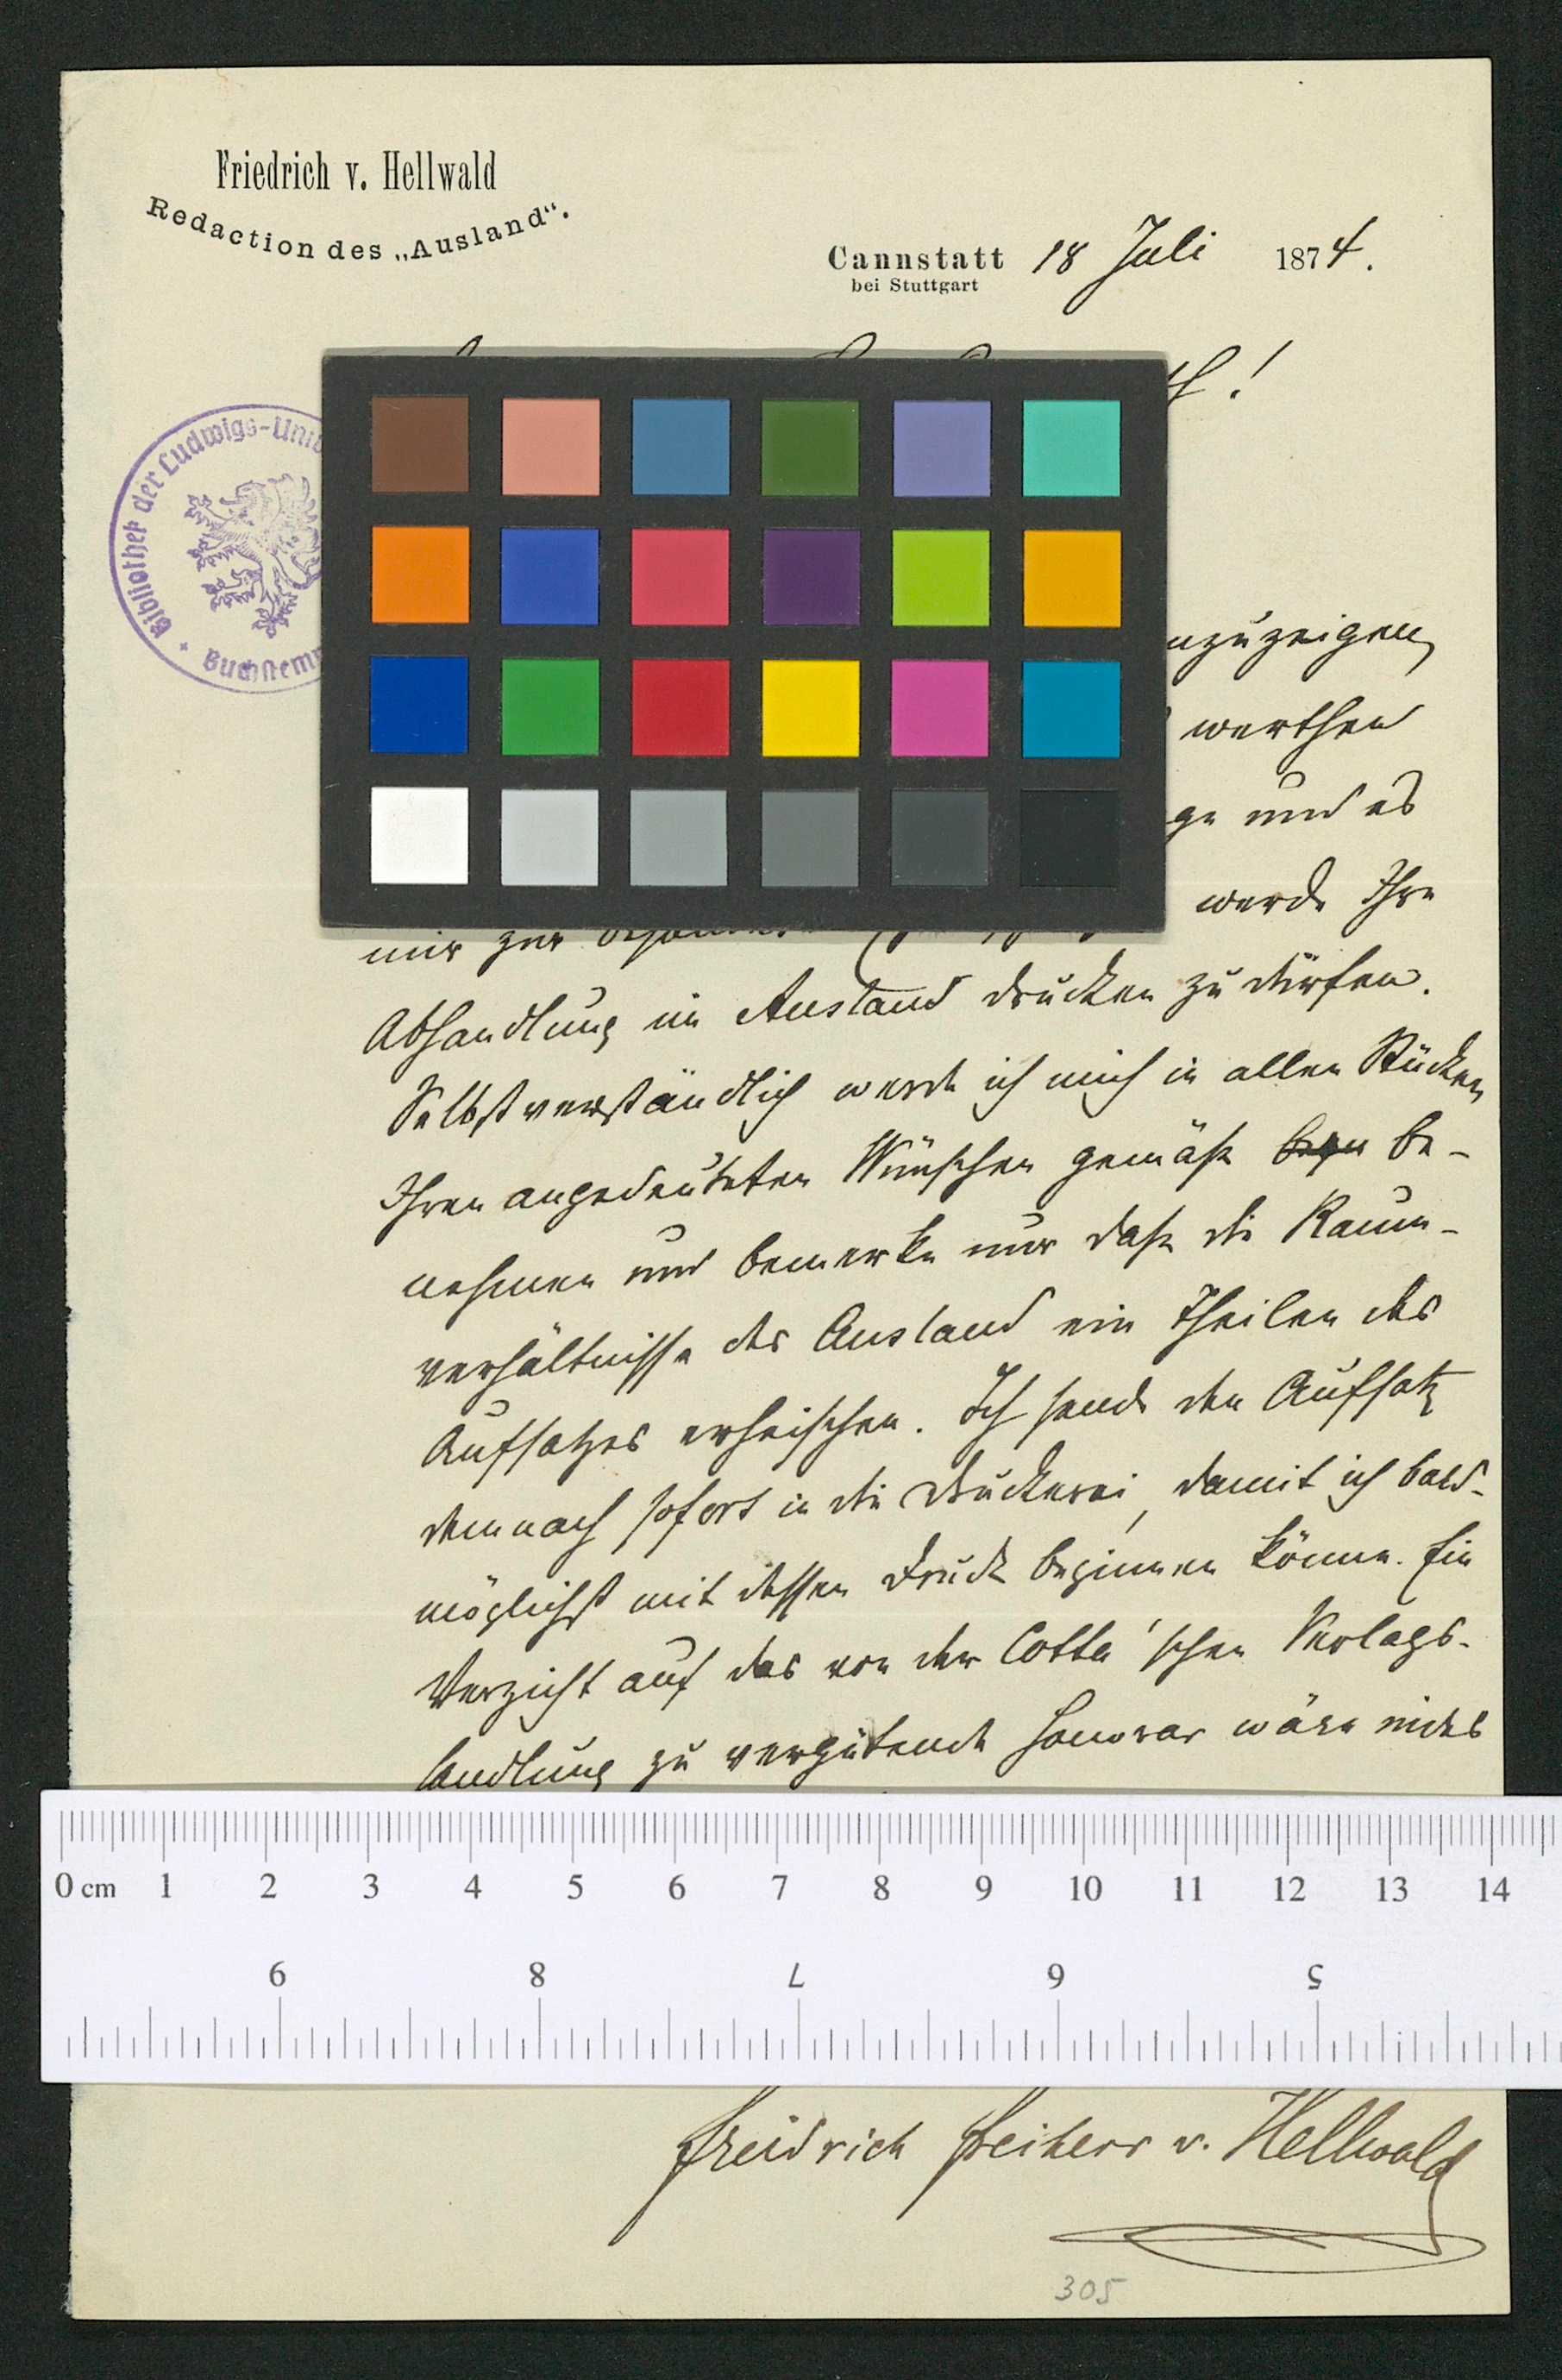 Friedrich v. Hellwald
Redaction des „Ausland“.
Cannstatt 18 Juli 1874.
bei Stuttgart
Bibliothek der Ludwigs-Univ
Buchstemp
nzuzeigen,
werthen
ge und es
werde Ihre
mir zur
Abhandlung im Ausland drucken zu dürfen.
Selbstverständlich werde ich mich in allen Stücken
Ihren angedeuteten Wünschen gemäß be-
nehmen und bemerke nur daß die Raum-
verhältnisse des Ausland ein Theilen des
Aufsatzes erheischen. Ich sende den Aufsatz
demnach sofort in die Druckerei, damit ich bald-
möglichst mit dessen Druck beginnen könne. Ein
Verzicht auf das von der Cotta'schen Verlags-
handlung zu vergütende Honorar wäre
0 cm 1 2 3 4 5 6 7 8 9 10 11 12 13 14
9 8 7 6 5
Friedrich Freiherr v. Hellwald
305